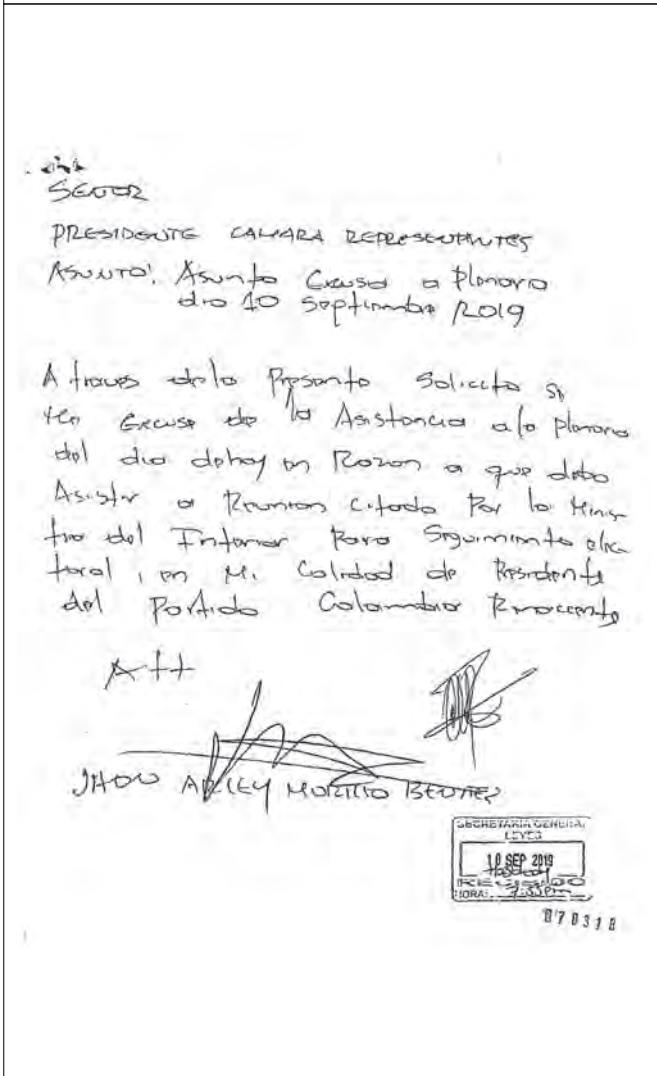 SEÑOR
PRESIDENTE CAMARA REPRESENTANTES
ASUNTO: Asunto Excusa a Plenaria
dia 10 Septiembre /2019
A traves de la Presente Solicito se
me Excuse de la Asistencia a la plenaria
del dia de hoy en Razon a que debo
Asistir a Reunion citada Por la Minis
tra del Interior Para Seguimiento elec
toral, en Mi Calidad de Presidente
del Partido Colombia Renaciente
Att
JHON ARLEY MURILLO BENITEZ
SECRETARIA GENERAL
LEYES
10 SEP 2019
RECIBIDO
HORA:
070318